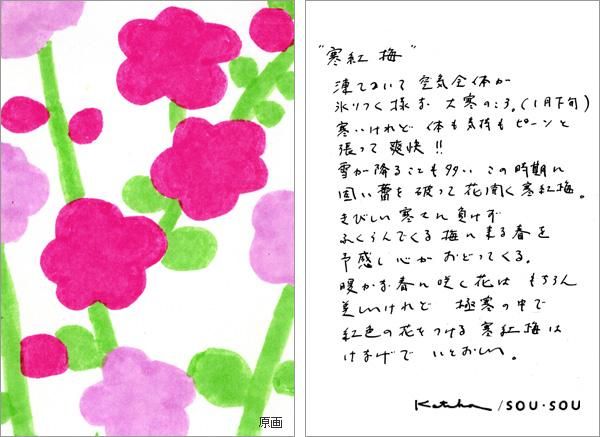 原画
"寒紅梅"
凍てついて 空気全体が
氷りつく様な 大寒のころ。(1月下旬)
寒いけれど 体も気持もピーンと
張って 爽快!!
雪が降ることも多い この時期に
固い蕾を破って 花開く寒紅梅。
きびしい寒さに負けず
ふくらんでくる梅に来る春を
予感し心がおどってくる。
暖かな春に咲く花は もちろん
美しいけれど 極寒の中で
紅色の花をつける 寒紅梅は
けなげで いとおしい。
/SOU・SOU